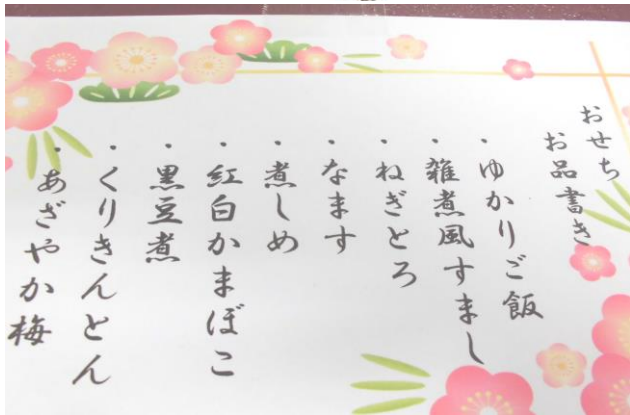 おせち
お品書き
・ゆかりご飯
・雑煮風すまし
・ねぎとろ
・なます
・煮しめ
・紅白かまぼこ
・黒豆煮
・くりきんとん
・あざやか梅